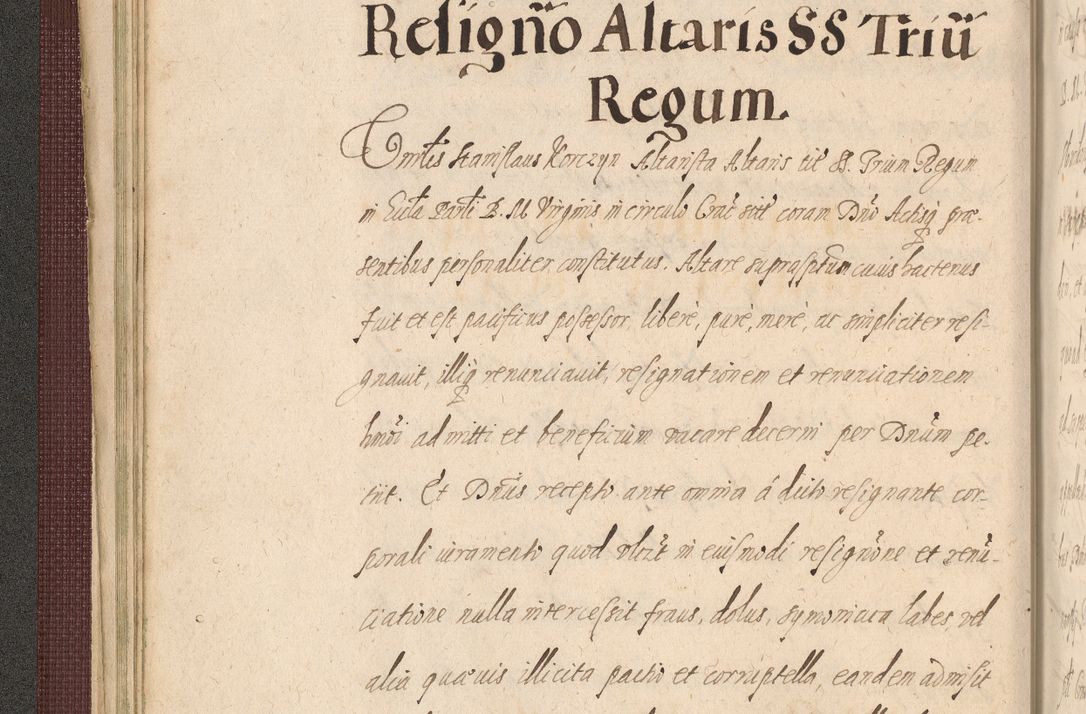 Resigno͠o Altaris SS Triu͠
Regum.
Stanislaus Korczyn Altarista Altaris tit SS. Trium Regum
in Eccla B. M Virginis in circulo Crac coram Dno Actisq prae-
sentibus personaliter constitutus. Altare suprascptum cuius hactenus
fuit et est pacificus possessor, libere, pure, mere, ac simpliciter resi-
gnauit, illiq renunciauit, resignationem et renunciationem
hmoi admitti et beneficium vacare decerni per Dnum pe-
tiit. Et Dnus recepto ante omnia á dicto resignante cor-
porali iuramento quod in eiusmodi resignone et renu-
ciatione nulla intercessit fraus, dolus, symoniaca labes, vel
alia quaeuis illicita pactio et corruptella, eandem admisit